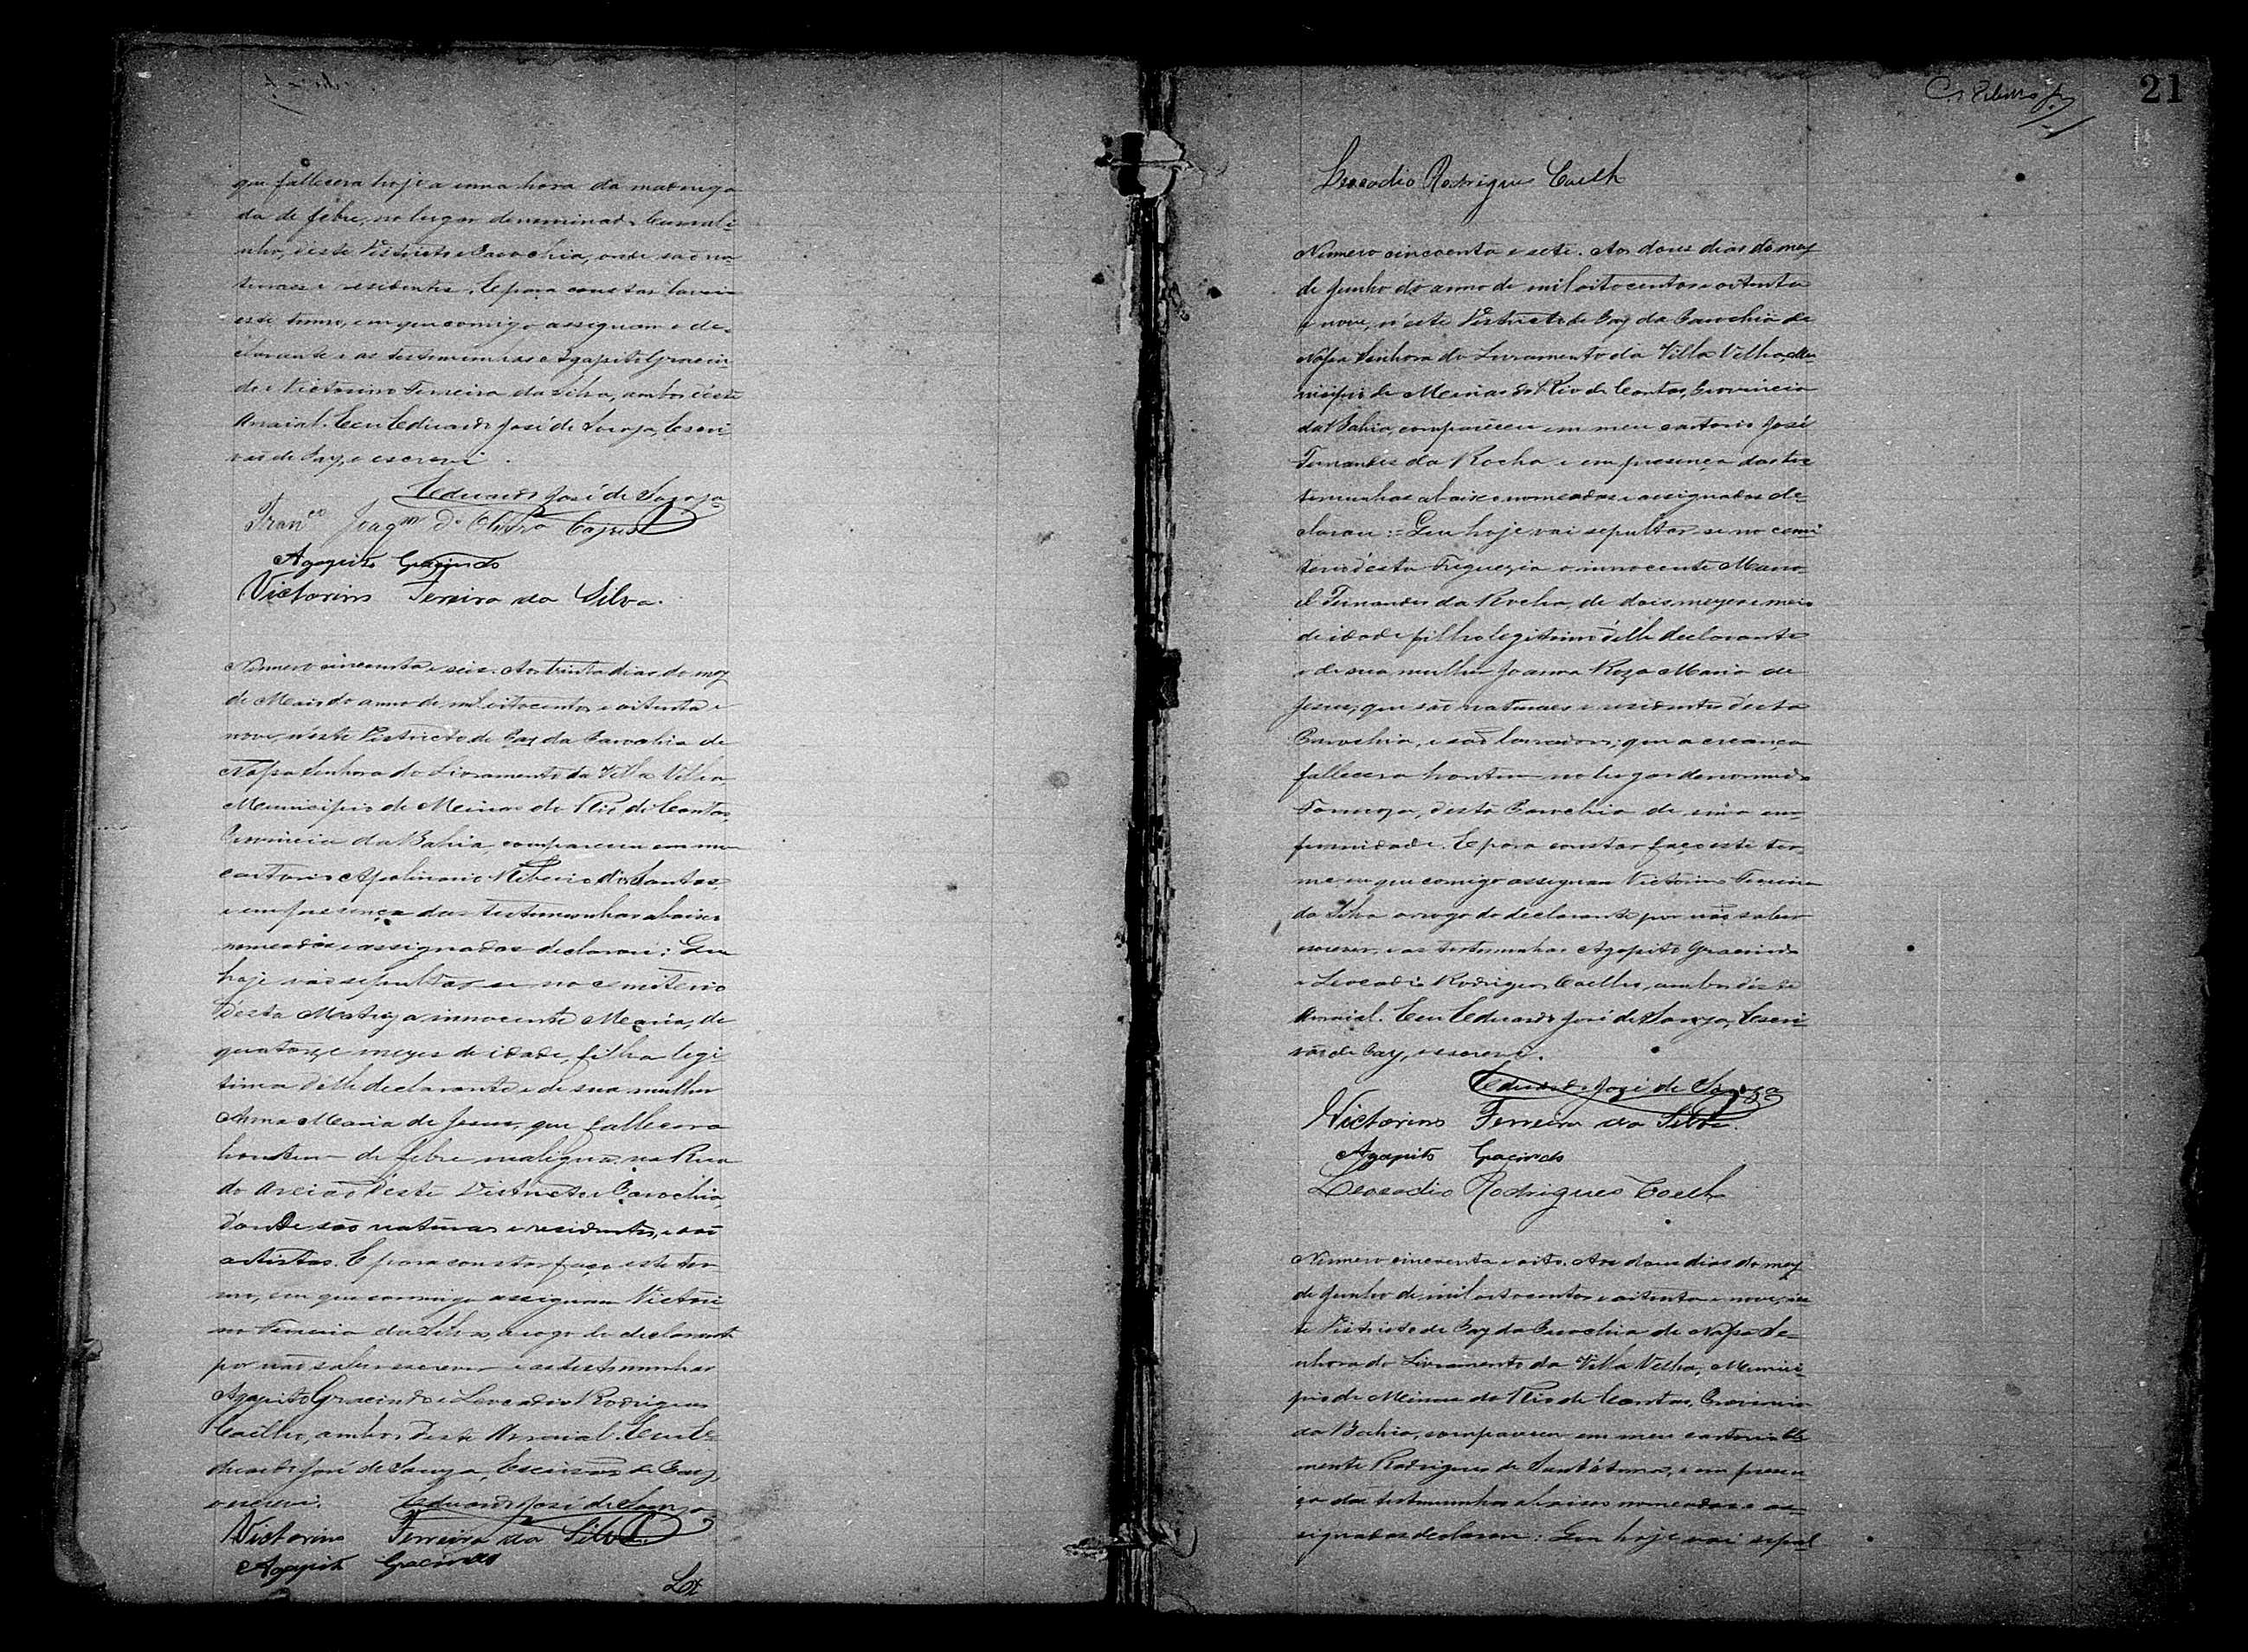 que fallecera hoje a uma hora da madruga-
da de febre, no lugar denominado Curuali-
nho, d'este Districto e Parochia, onde são na-
turaes e residentes. E para constar lavrei
este termo, em que comigo assignam o de-
clarante e as testemunhas Agapito Gracin-
do e Victorino Ferreira da Silva, ambos d'este
Arraial. Eu Eduardo José de Souza, Escri-
vão de Paz, o escrevi.
Eduardo José de Souza
Franco Joaqm de Olivra
Agapito Gracindo
Victorino Ferreira da Silva.
Numero cincoenta e seis. Aos trinta dias do mez
de Maio do anno de mil oitocentos e oitenta e
nove, n'este Districto de Paz da Parochia de
Nossa Senhora do Livramento da Villa Velha
Municipio de Minas do Rio de Contas,
Provincia da Bahia, compareceu em meu
cartorio Apolinario Ribeiro dos Santos,
e em presença das testemunhas abaixo
nomeadas e assignadas declarou: Que
hoje vai sepultar-se no cemiterio
d'esta Matriz a innocente Maria, de
quatorze mezes de idade, filha legi-
tima d'elle declarante e de sua mulher
Anna Maria de Jesus, que fallecera
hontem de febre maligna na Rua
do Areião d'este Districto e Parochia,
d'onde são naturaes e residentes, e são
artistas. E para constar faço este ter-
mo, em que commigo assignam Victori-
no Ferreira da Silva, a rogo do declarante
por não saber escrever e as testemunhas
Agapito Gracindo e Leocadio Rodrigues
Coelho, ambos deste Arraial. Eu E-
duardo José de Souza, Escrivão de Paz,
o escrevi. Eduardo José de Souza
Victorino Ferreira da Silva.
Agapito Gracindo
21
Leocadio Rodrigues Coelh
Numero cincoenta e sete. Aos dous dias do mez
de Junho do anno de mil oitocentos e oitenta
e nove, n'este Districto de Paz da Parochia de
Nossa Senhora do Livramento da Villa Velha Mu-
nicipio de Minas do Rio de Contas, Provincia
da Bahia, compareceu em meu cartorio José
Fernandes da Rocha e em presença das tes-
temunhas abaixo nomeadas e assignadas de-
clarou: Que hoje vai sepultar-se no cemi-
terio d'esta Freguezia o innocente Mano-
el Fernandes da Rocha, de dois mezes e meio
de idade filho legitimo d'elle declarante
e de sua mulher Joanna Roza Maria de
Jesus, que são naturaes e residentes d'esta
Parochia, e são lavradores; que a creança
fallecera hontem no lugar denominado
desta Parochia de uma en-
fermidade. E para constar faço este ter-
mo em que comigo assignam Victorino Ferreira
da Silva a rogo do declarante por não saber
escrever, e as testemunhas Agapito Gracindo
e Leocadio Rodrigues Coelho, ambos d'este
Arraial. Eu Eduardo José de Souza, Escri-
vão de Paz, o escrevi.
Eduardo José de Souza
Victorino Ferreira da Silva.
Agapito Gracindo
Leocadio Rodrigues Coelh
Numero cincoenta e oito. Aos dous dias do mez
de Junho de mil oitocentos e oitenta e nove, nes-
te Districto de Paz da Parochia de Nossa Se-
nhora do Livramento da Villa Velha, Munici-
pio de Minas do Rio de Contas, Provincia
da Bahia, compareceu em meu cartorio Cle-
mente Rodrigues de Sant'Anna, e em presen-
ça das testemunhas abaixo nomeadas e as-
signadas declarou: Que hoje vai sepul-